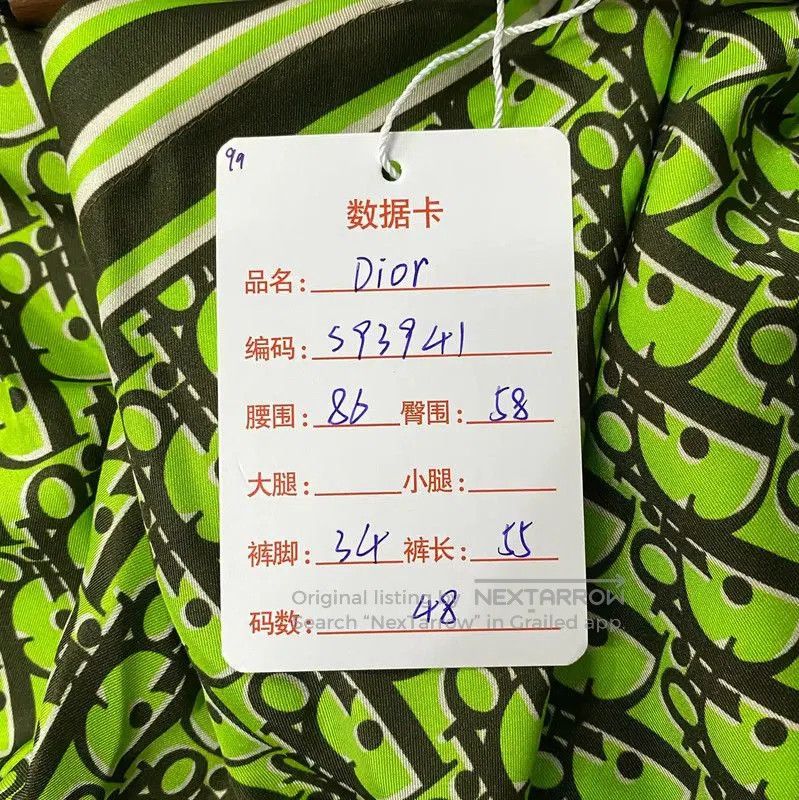 99
数据卡
品名: Dior
编码: S93941
腰围: 86 臀围: 58
大腿: 小腿:
裤脚: 34 裤长: 55
Original listing by NEXTARROW
码数: 48
Search “NexTarrow” in Grailed app